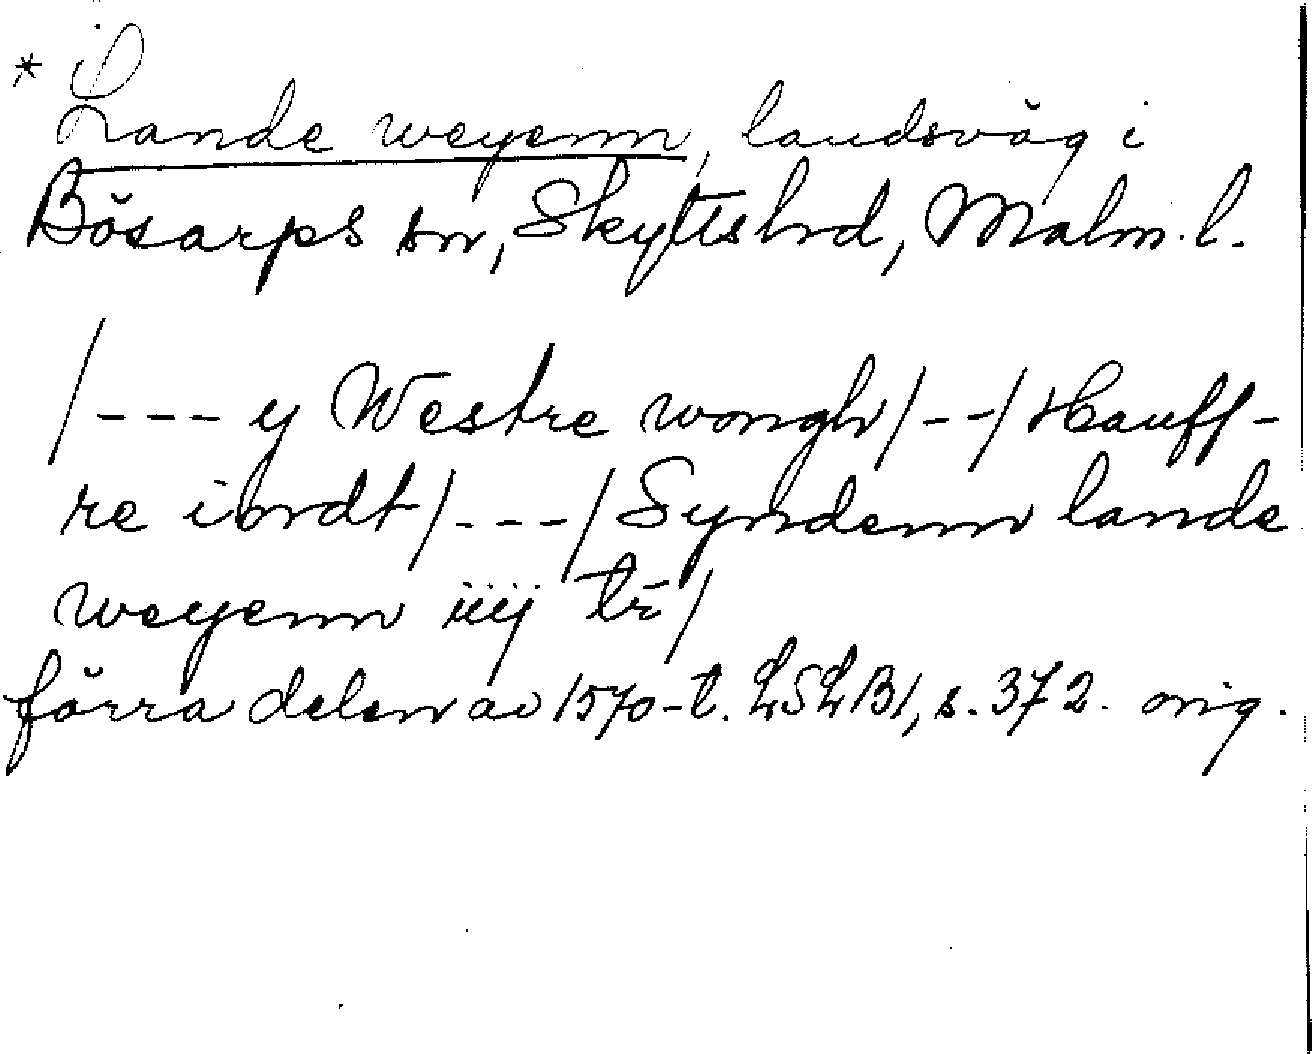 * Lande weyenn, landsväg i
Bösarps sn, Skytts hrd, Malm. l.
/--- y Westre wongh/--/Hauff-
re iordt/---/Syndenn lande
weyenn iiij tr̄/
förra delen av 1570-t. LSLB1, s. 372. orig.